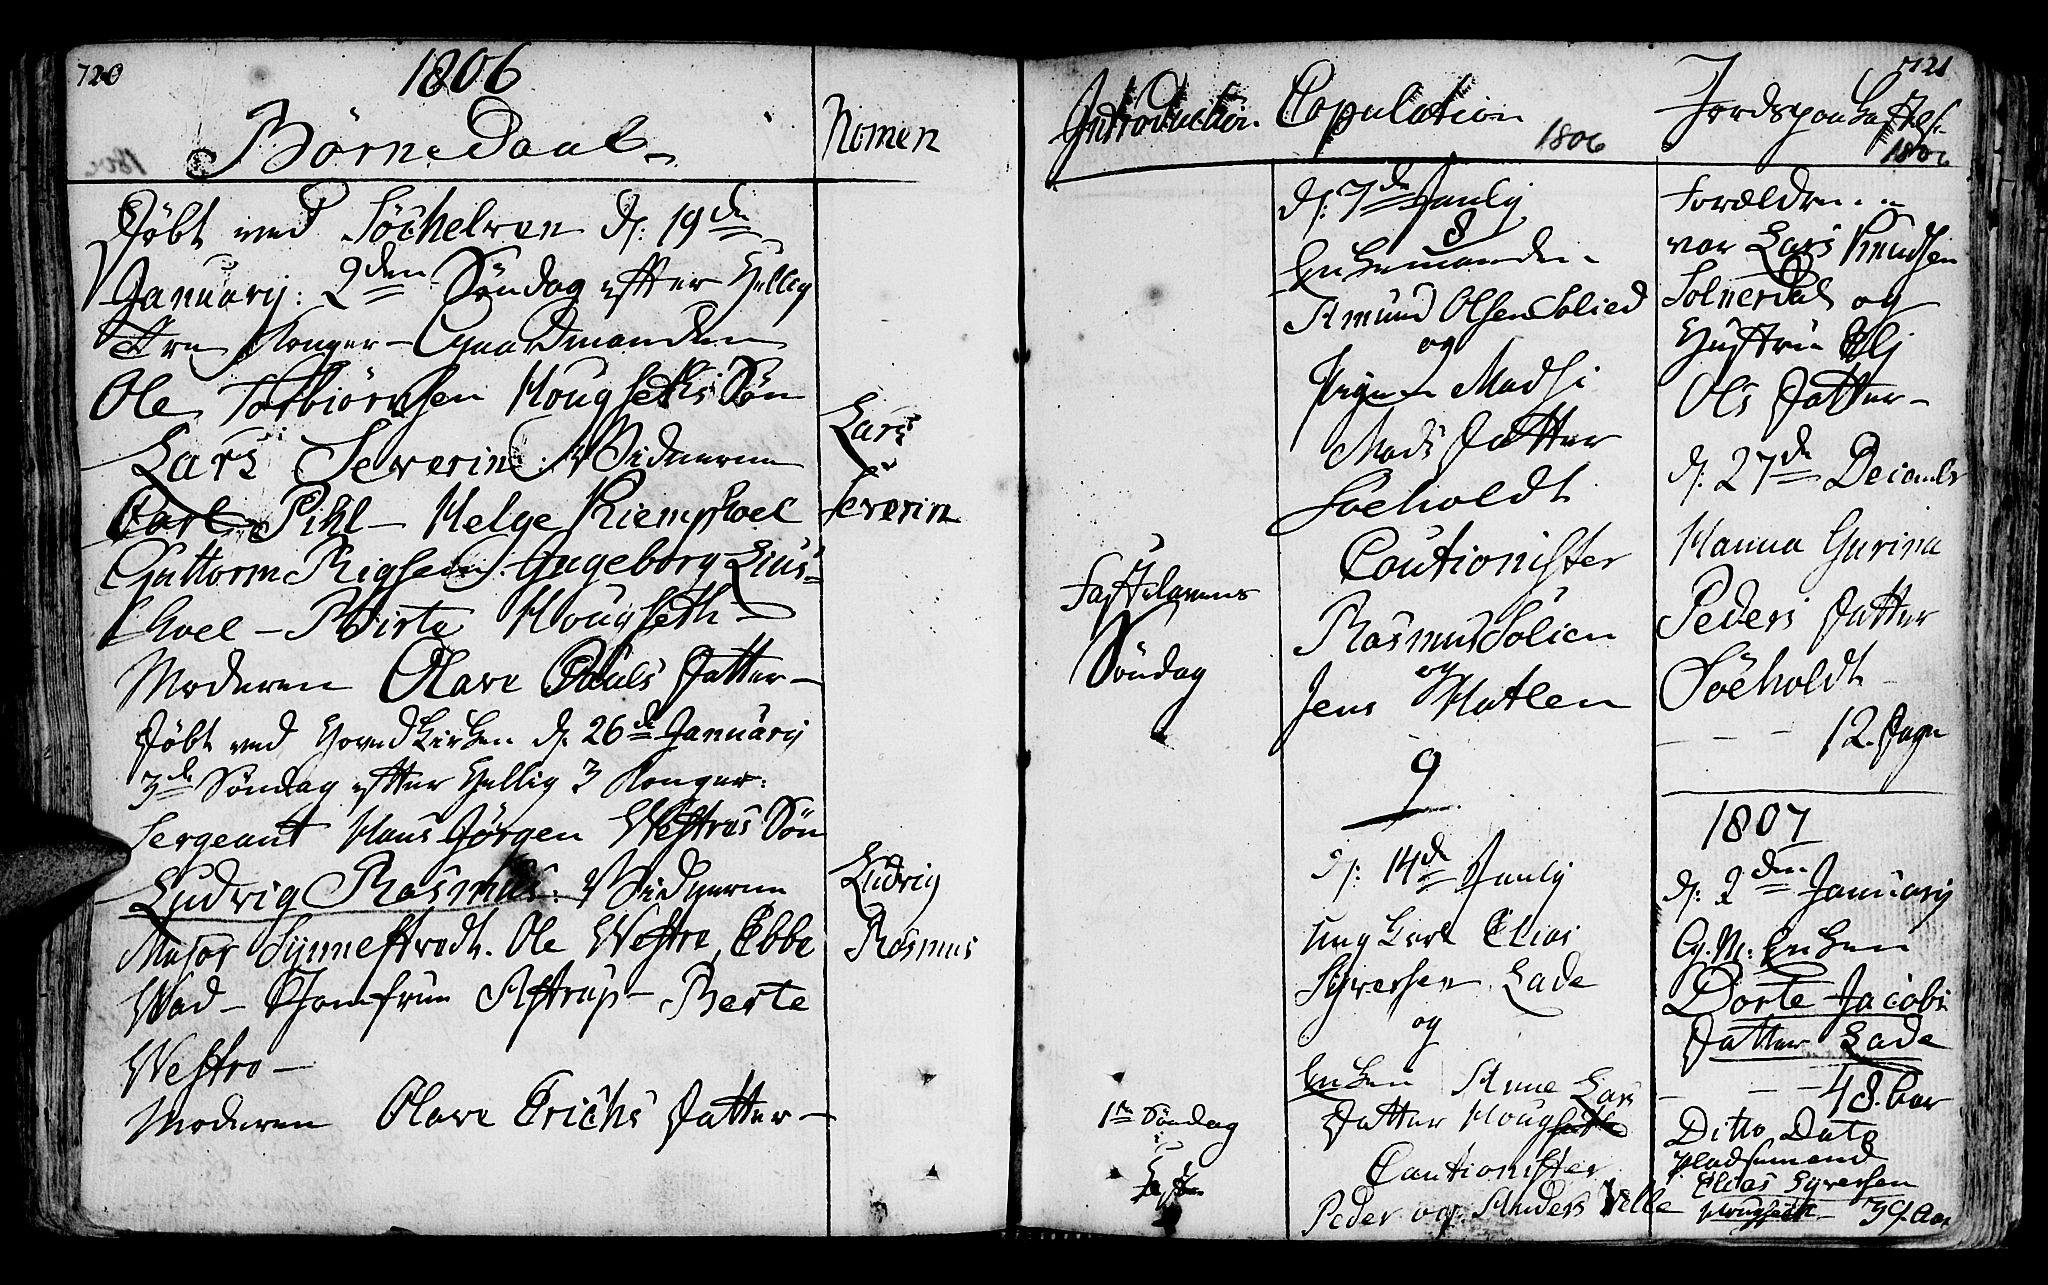 720
1806
Børne Daab
Nomen
Døbt ved Söchelven d: 19de
January: 2den Søndag efter Hellig
Tre Konger - Gaardmanden
Ole Torbiørnsen Hougseths Søn
Lars Severin: Vidnerne
Carl Pihl - Helge Kiemphoel
Guttorm Rigsem: Ingeborg Lius=
hoel - Birte Hougseth -
Moderen Olave Pauls Datter -
Lars
Severin
Døbt ved Hovedkirken d: 26de January
3de Søndag efter Hellig 3 Konger:
Sergeant Hans Jørgen Westres Søn
Ludvig Rasmus: Vidnerne
Major Synnestvedt. Ole Westre, Ebbe
Wad - Jomfrue Astrup - Berte
Westre -
Moderen Olave Erichs Datter -
Ludvig
Rasmus
Introduction
Fastelavens
Søndag
1te Søndag
i
Faste
Copulation
1806
d: 7de July
8
Enkemanden
Amund Olsen Solied
og
Pigen Madsi
Mads Datter
Søeholdt
Cautionister
Rasmus Solien
og
Jens Hatlen
9
d: 14de July
Ung Karl Elias
Syversen Lade
og
Enken Anne Lars
Datter Hougseth
Cautionister
Peder og Anders Velle
721
Jordspaakastelse
1806
Forældrene
var Lars Knudsen
Solnerdal og
Hustrue Eli
Ols Datter -
d: 27de Decembr
Hanna Gurina
Peders Datter
Søeholdt
- - - 12. Dage
1807
d: 2den January
G. M. Enken
Dorte Jacobs
Datter Lade
- - 48. Aar
Ditto Dato
Pladsemand
Elias Syversen
Hougseth - 79. Aar